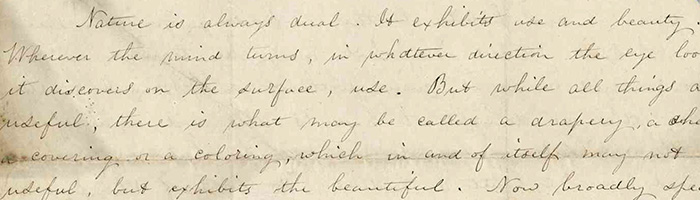 Nature is always dual. It exhibits use and beauty
Wherever the mind turns, in whatever direction the eye loo
it discovers on the surface, use. But while all things a
useful, there is what may be called a drapery, a she
a covering or a coloring, which in and of itself may not
useful, but exhibits the beautiful. Now broadly spe